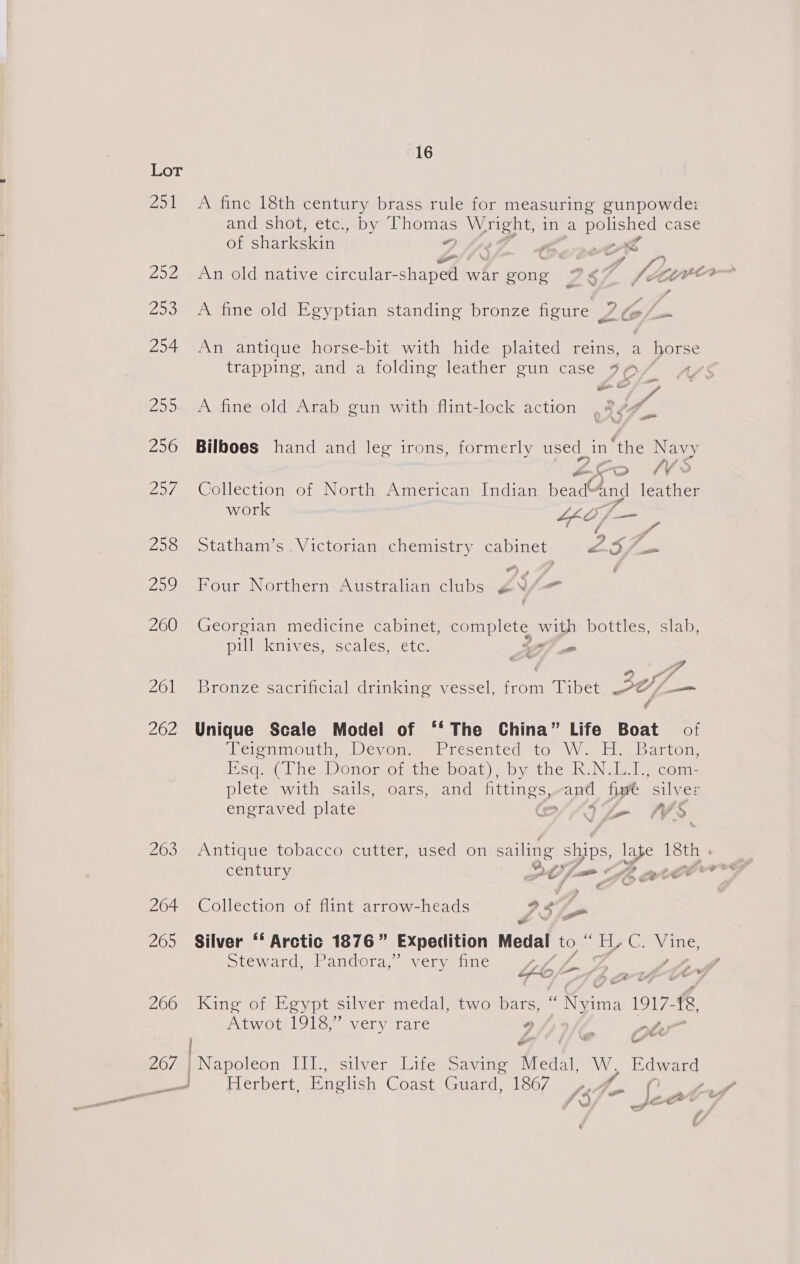 16
Lot
251 A fine 18th century brass rule for measuring gunpowder
and shot, etc., by Thomas Wright, in a polished case
of sharkskin
252 An old native circular-shaped war gong 25/-
253 A fine old Egyptian standing bronze figure
254 An antique horse-bit with hide plaited reins, a horse
trapping, and a folding leather gun case
255 A fine old Arab gun with flint-lock action
256 Bilboes hand and leg irons, formerly used in the Navy
NS
257 Collection of North American Indian bead and leather
work
258 Statham's Victorian chemistry cabinet 25/-
259 Four Northern Australian clubs
260 Georgian medicine cabinet, complete with bottles, slab,
pill knives, scales, etc.
261 Bronze sacrificial drinking vessel, from Tibet 30/-
262 Unique Scale Model of "The China" Life Boat of
Teignmouth, Devon. Presented to W. H. Barton,
Esq. (The Donor of the boat), by the R.N.L.I., com-
plete with sails, oars, and fittings, and fine silver
engraved plate NS
263 Antique tobacco cutter, used on sailing ships, late 18th
century
264 Collection of flint arrow-heads 25/-
265 Silver "Arctic 1876" Expedition Medal to "H. C. Vine,
Steward, Pandora," very fine
266 King of Egypt silver medal, two bars, "Nyima 1917-18,
Atwot 1918," very rare
267 Napoleon III., silver Life Saving Medal, W. Edward
Herbert, English Coast Guard, 1867